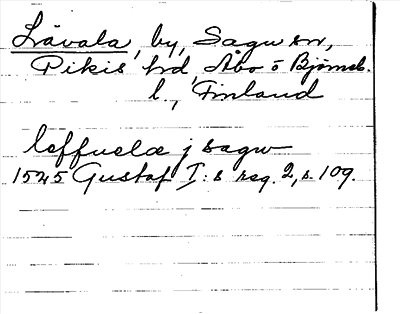 Lävala, by, Sagu sn,
Pikis hd, Åbo o Björneb.
l., Finland
leffuelæ j sagw
1545 Gustaf I:s reg. 2, s. 109.